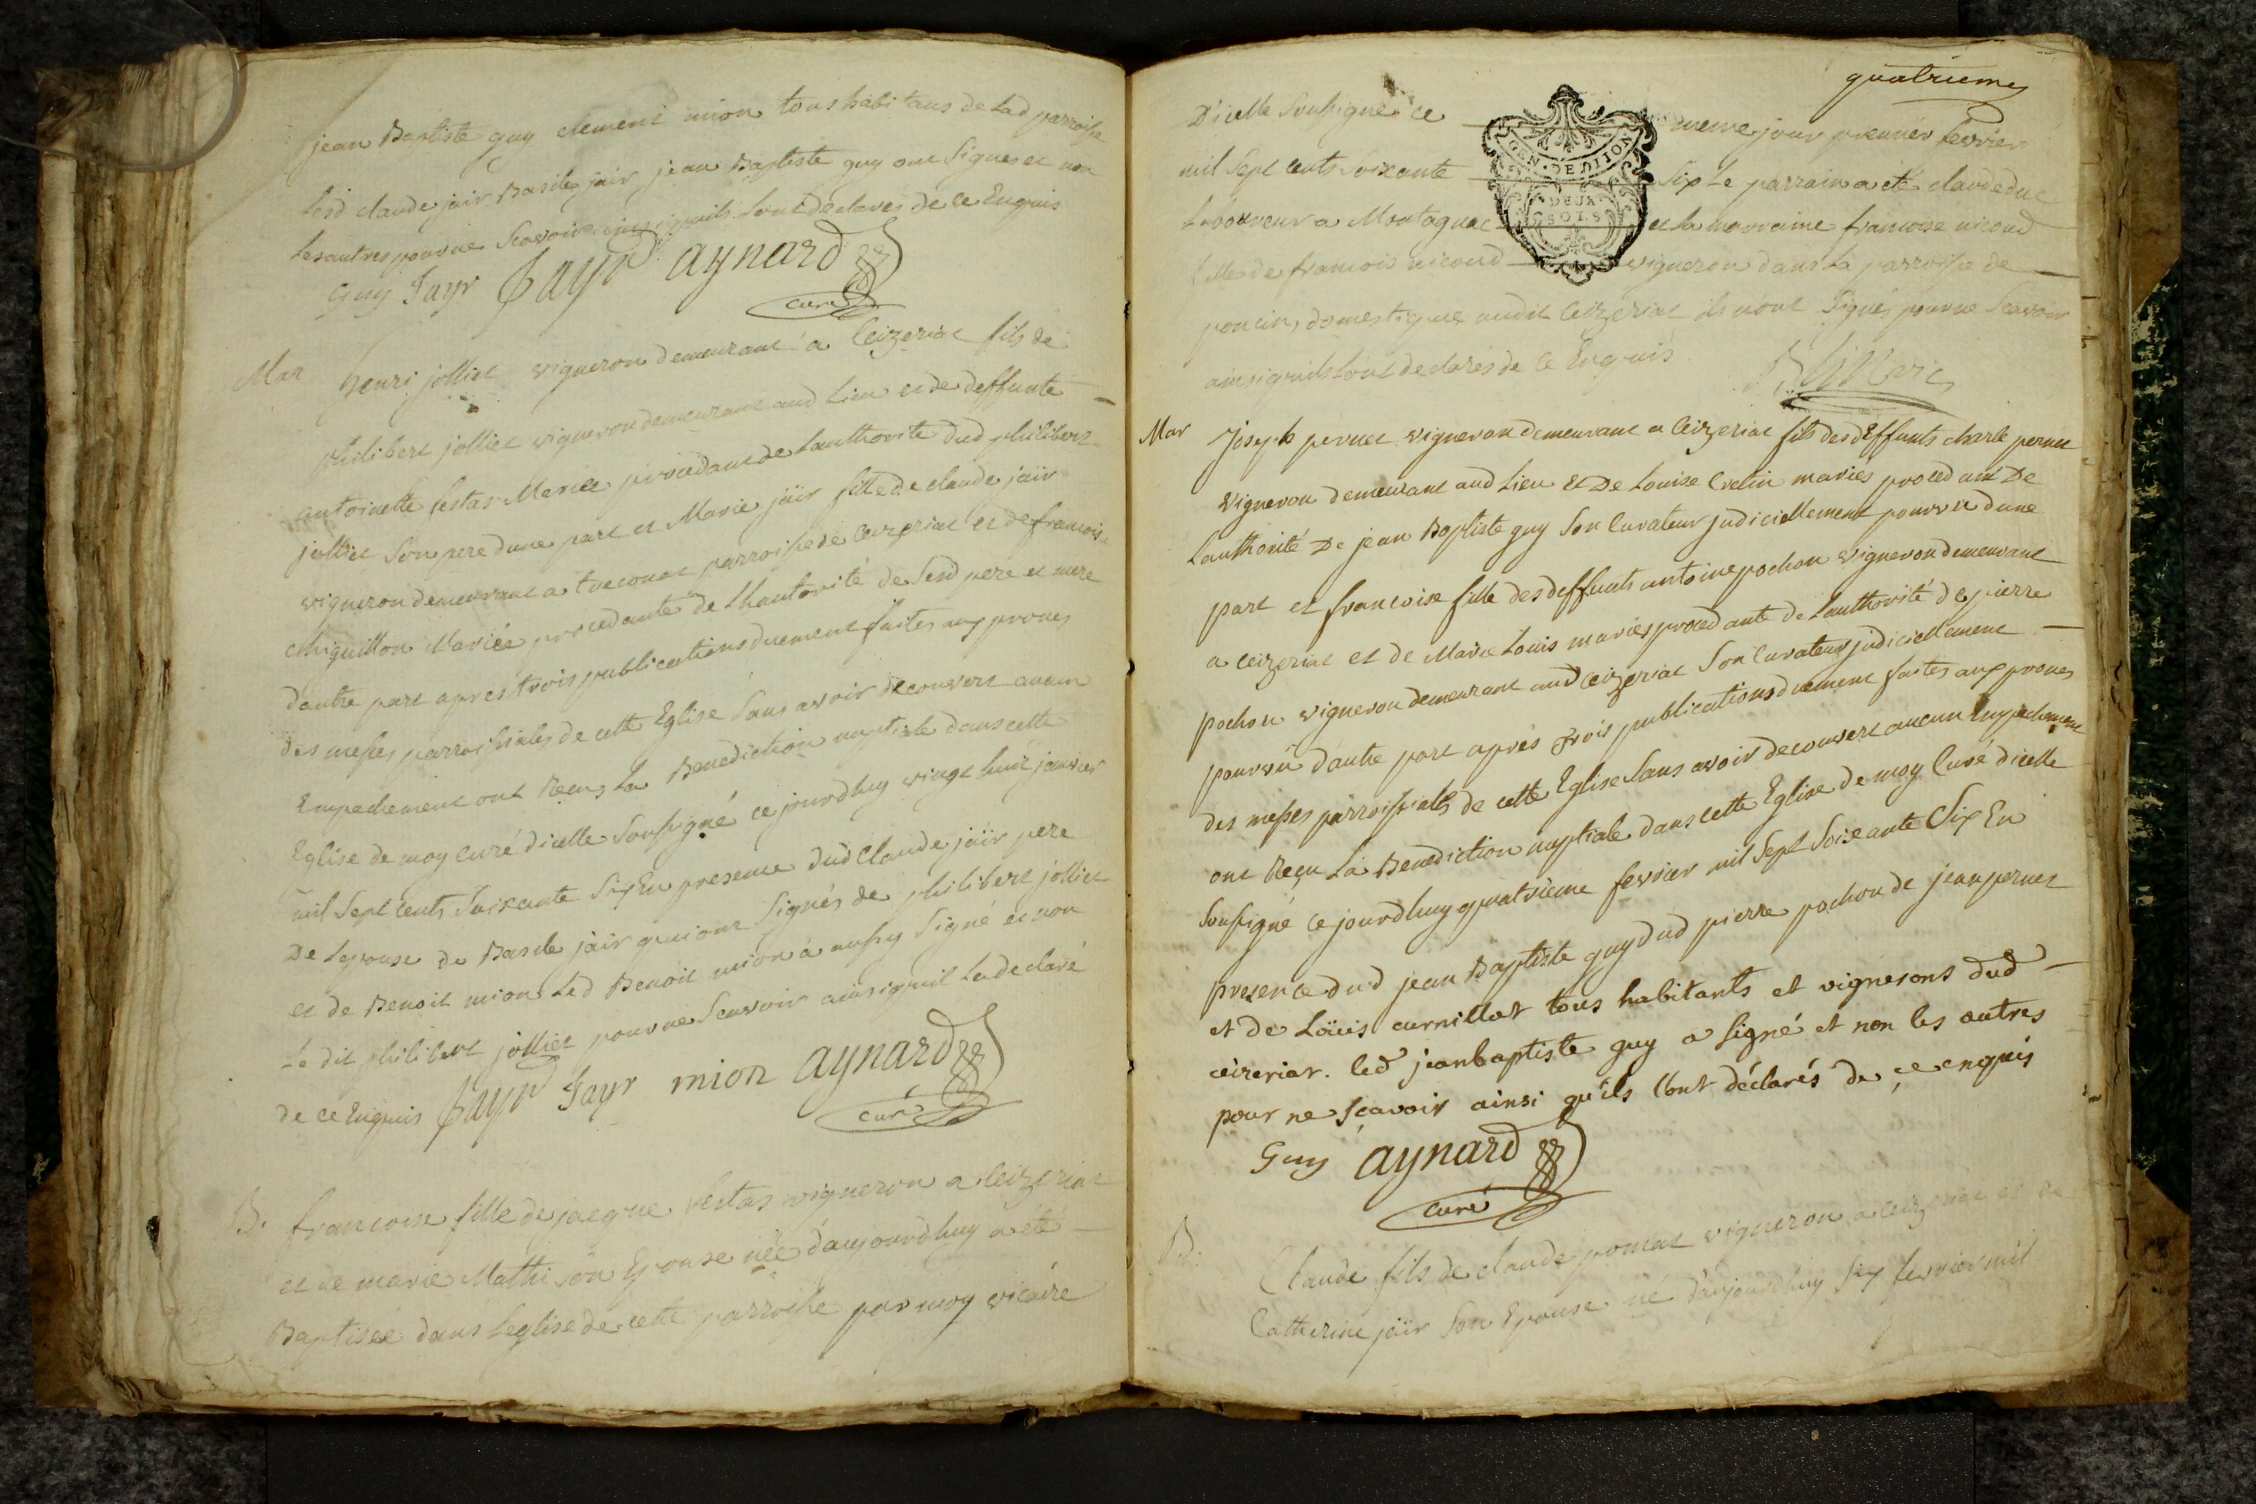 jean Baptiste guy clement mion tous habitans de lad parroisse
lesd claude jäir Basile jäir jean Baptiste guy ont signes et non
les autres pour ne scavoir ainsi quils lont declares de ce Enquis
Guy Jayr Jayr aynard
curé
Mar henri jolliet vigneron demeurant a Ceizeriat fils de
philibert jolliet vigneron demeurant aud lieu et de deffunte
antoinette Mariée procedant de lauthorite dud philibert
jolliet Son pere dune part et Marie jäir fille de claude jäir
vigneron demeurant a parroisse de Ceyzeriat et de francoise
chiquillon Mariée procedante de lhautorité de Sesd pere et mere
dautre part aprés trois publications duement faites aux prones
des messes parroissiales de cette Eglise Sans avoir decouvert aucun
Empechement ont Reçus la Benediction nuptiale dans cette
Eglise de moy curé dicelle Soussigné ce jourdhuy vingt huit janvier
mil Sept cents Soixante Six En presence dud Claude jäir pere
De lepouse de Basile jäir qui ont Signés de philibert jolliet
et de Benoit mion Led Benoit mion a aussy Signé et non
Le dit philibert jolliet pour ne Scavoir ainsi quil la declaré
de ce Enquis Jayr Jayr mion aynard
curé
B. francoise fille de jacque vigneron a Ceizeriat
et de marie Mathi son Epouse née daujourdhuy a été
Baptisée dans leglise de cette parroisse par moy vicaire
quatrieme
D'icelle Soussigné ce meme jour premier fevrier
mil Sept cents Soixante Six Le parrain a été claude duc
Laboureur a Montagnac et la marraine francoise nicoud
fille de francois nicoud vigneron dans la parroisse de
poncin, domestique audit Ceizeriat ils nont Signés pour ne Scavoir
ainsi quils lont declarés de ce Enquis
GEN. DE DIJON
DEUX
SOLS
Mar Joseph pernet vigneron demeurant a Ceizeriat fils des deffunts charle pernet
vigneron demeurant aud lieu et De Louise mariés procedant De
Lauthorité De jean Baptiste guy Son Curateur judiciellement pourvu dune
part et francoise fille des deffunts antoine pochon vigneron demeurant
a ceizeriat et de Marie Louis mariés procedante de Lauthorité de pierre
pochon vigneron demeurant aud Ceizeriat Son Curateur judiciellement
pourvû dautre part aprés trois publications duement faites aux prones
des messes parroissiales de cette Eglise Sans avoir decouvert aucun Empechement
ont Reçu La Benediction nuptiale dans cette Eglise de moy Curé dicelle
Soussigné ce jourdhuy quatrieme fevrier mil Sept Soixante Six En
presence dud jean Baptiste guy dud pierre pochon de jean pernet
et de Loüis curnillat tous habitants et vignerons dud
ceizeriat. led jean baptiste guy a signé et non les autres
pour ne sçavoir ainsi qu'ils l'ont déclarés de ce enquis
Guy aynard
curé
B. Claude fils de claude vigneron a Ceizeriat et de
Catherine jäir Son Epouse né daujourdhuy Six fevrier mil